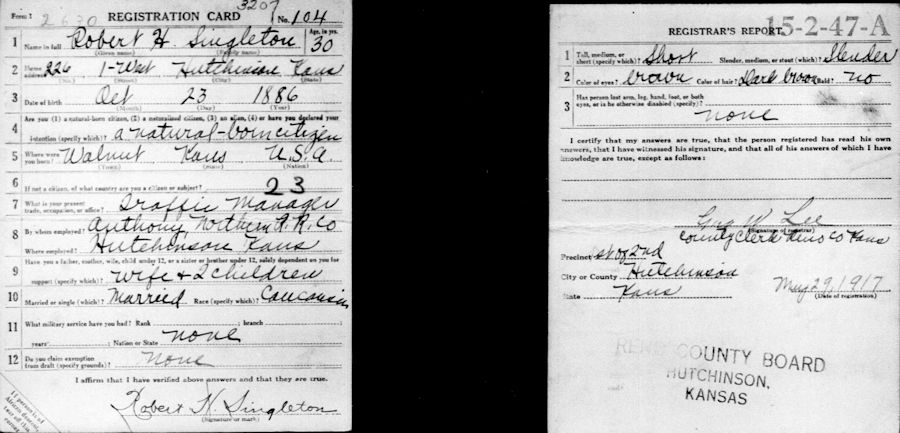 Form 1 2630 REGISTRATION CARD 3207 No. 104
1 Name in full Robert H. Singleton Age, in yrs. 30
(Given name) (Family name)
2 Home address 226 1-West Hutchinson Kans
(No.) (Street) (City) (State)
3 Date of birth Oct 23 1886
(Month) (Day) (Year)
4 Are you (1) a natural-born citizen, (2) a naturalized citizen, (3) an alien, (4) or have you declared your
intention (specify which)? a natural-born citizen
5 Where were you born? Walnut Kans U.S.A.
(Town) (State) (Nation)
6 If not a citizen, of what country are you a citizen or subject?
23
7 What is your present trade, occupation, or office? Traffic Manager
8 By whom employed? Anthony Northern R.R. Co
Where employed? Hutchinson Kans
9 Have you a father, mother, wife, child under 12, or a sister or brother under 12, solely dependent on you for
support (specify which)? Wife + 2 children
10 Married or single (which)? Married Race (specify which)? Caucasin
11 What military service have you had? Rank ; branch ;
years ; Nation or State none
12 Do you claim exemption from draft (specify grounds)? None
I affirm that I have verified above answers and that they are true.
Robert H Singleton
(Signature or mark)
If person is of African descent, tear off this corner
15-2-47-A
REGISTRAR'S REPORT
1 Tall, medium, or short (specify which)? Short Slender, medium, or stout (which)? Slender
2 Color of eyes? brown Color of hair? Dark brown Bald? no
3 Has person lost arm, leg, hand, foot, or both
eyes, or is he otherwise disabled (specify)?
none
I certify that my answers are true, that the person registered has read his own
answers, that I have witnessed his signature, and that all of his answers of which I have
knowledge are true, except as follows:
Geo W Lee
(Signature of registrar)
County Clerk Reno Co Kans
Precinct 1st of 2nd
City or County Hutchinson
State Kans May 29, 1917
(Date of registration)
RENO COUNTY BOARD
HUTCHINSON,
KANSAS